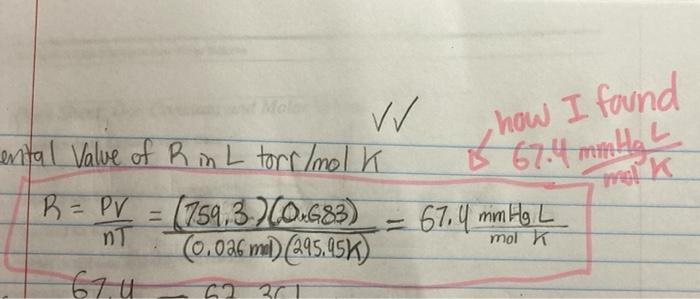 how I found
67.4 mmHg L / mol K
ental Value of R in L torr/mol K
R = PV/nT = (759.3)(0.683) / (0.026 mol)(295.95K) = 67.4 mmHg L / mol K
67.4